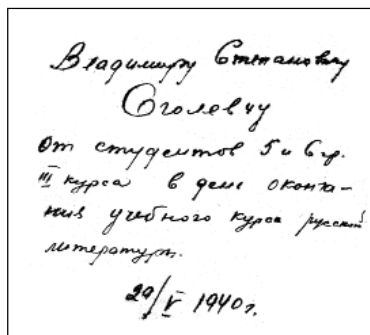 Владимиру Степановичу
Оголевчу
От студентов 5 и 6 гр.
III курса в день оконча-
ния учебного курса русской
литературы.
29/V 1940 г.